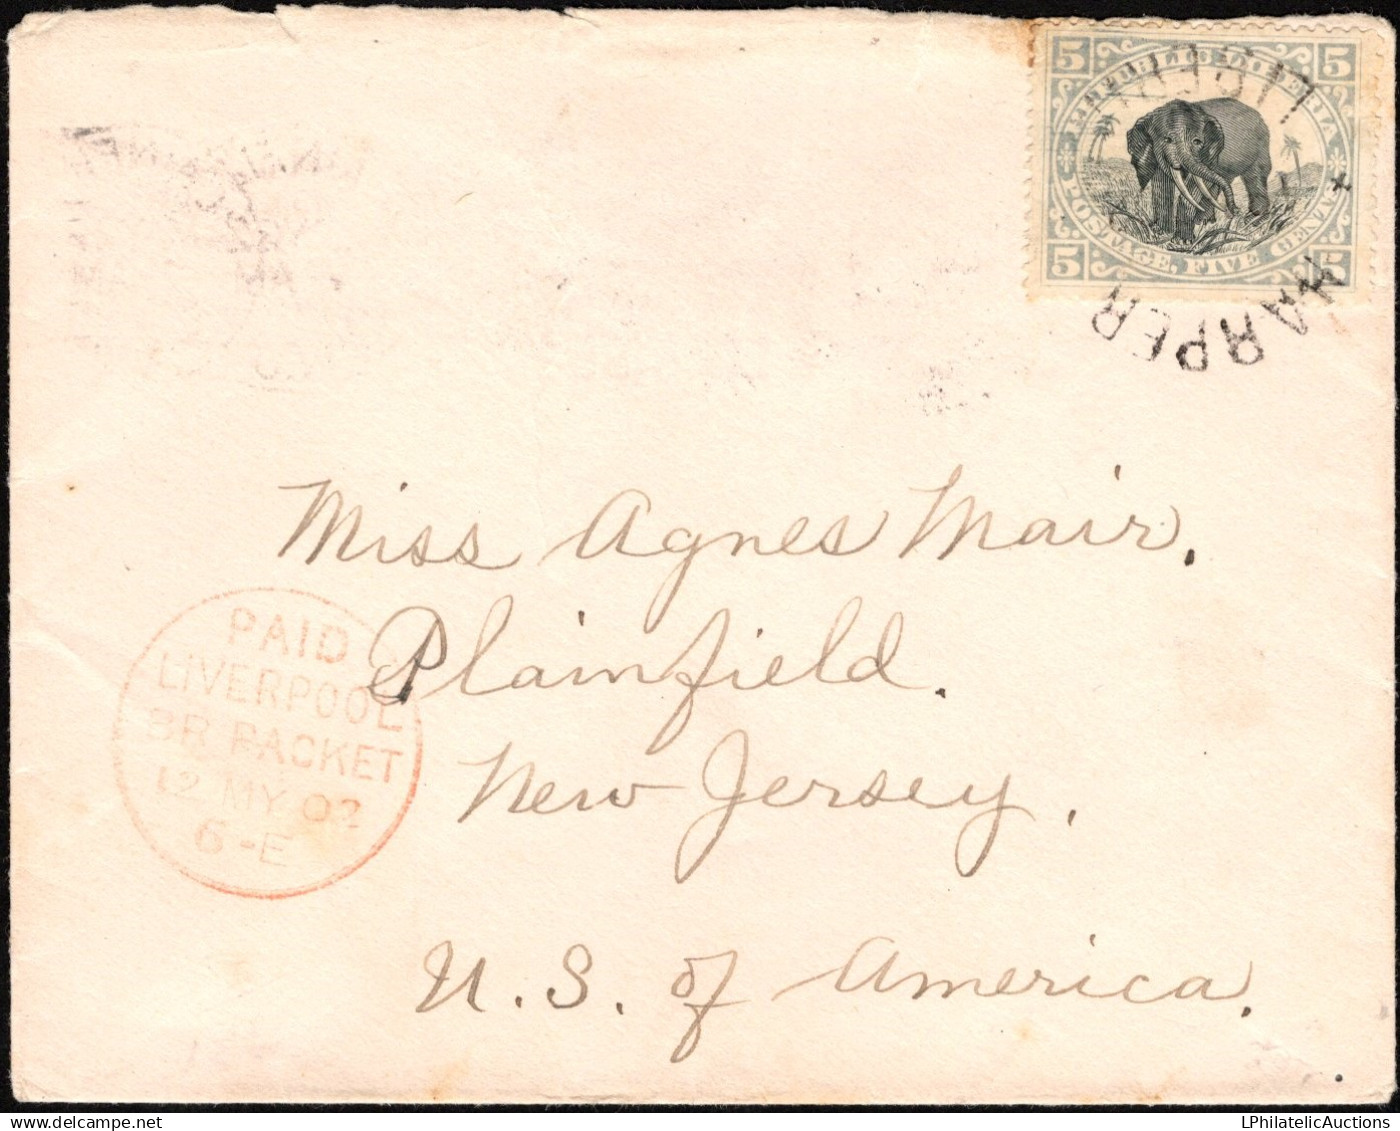 5 REPUBLIC LIBERIA 5
5 POSTAGE, FIVE CENTS 5
HARPER
Miss Agnes Mair,
Plainfield.
New Jersey.
U. S. of America.
PAID
LIVERPOOL
BR PACKET
12 MY 02
6-E
LPhilatelicAuctions